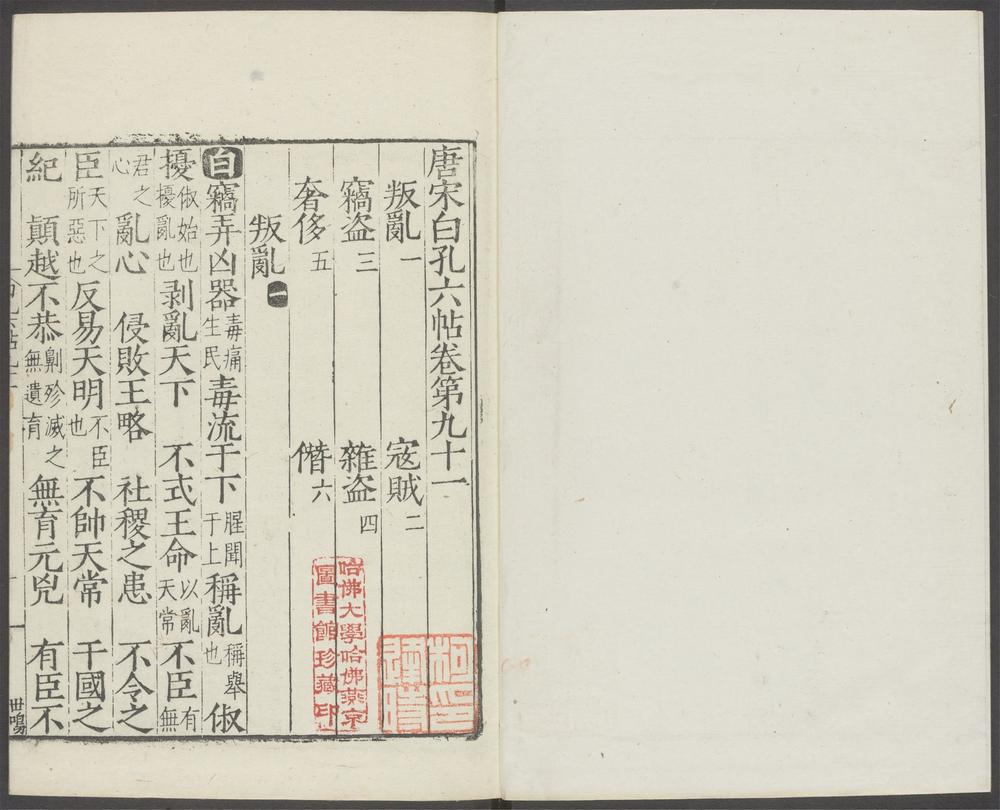 唐宋白孔六帖卷第九十一
叛亂一 寇賊二
竊盗三 雜盗四
奢侈五 僭六
叛亂一
白竊弄凶器毒痛生民毒流于下腥聞于上稱亂稱舉也俶
擾俶始也擾亂也剥亂天下 不式王命以亂天常不臣有無
君之心亂心 侵敗王略 社稷之患 不令之
臣天下之所惡也反易天明不臣也不帥天常 干國之
紀 顛越不恭劓殄滅之無遺育無育元兇 有臣不
世鳴
哈佛大學哈佛燕京
圖書館珍藏印
柯印
逢時